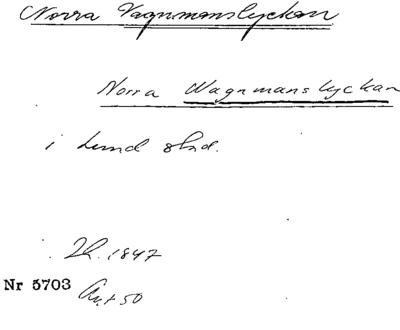 Norra Vagnmanslyckan
Norra Wagnmanslyckan
i Lund stad.
Lh. 1847
Nr 5703
Av. + 50